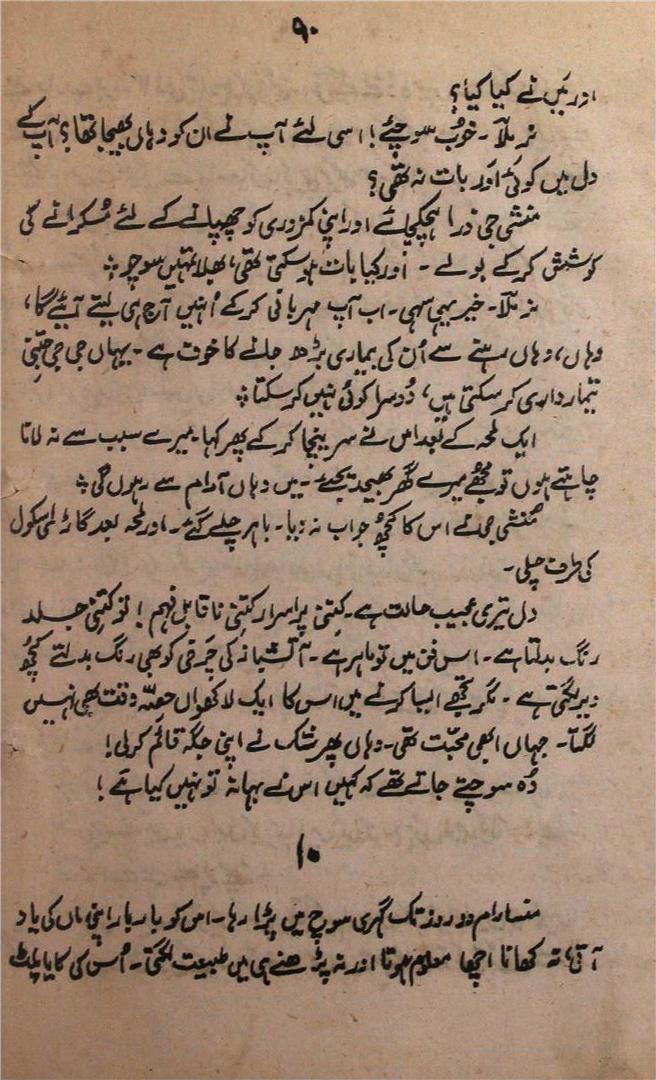 ۹۰
اور میں نے کیا کیا؟
نرملا۔ خوب سوچئے! اسی لئے آپ نے ان کو وہاں بھیجا تھا؟ آپ کے
دل میں کوئی اور بات نہ تھی؟
منشی جی ذرا ہچکچائے اور اپنی کمزوری کو چھپانے کے لئے مسکرانے کی
کوشش کر کے بولے۔ اور کیا بات ہو سکتی تھی، بھلا تمہیں سوچو۔
نرملا۔ خیر یہی سہی۔ اب آپ مہربانی کر کے اُنہیں آج ہی لیتے آئیے گا،
وہاں، وہاں رہنے سے اُن کی بیماری بڑھ جانے کا خوف ہے۔ یہاں جی جی جتنی
تیمارداری کر سکتی ہیں، دُوسرا کوئی نہیں کر سکتا۔
ایک لمحہ کے بعد اس نے سر نیچا کر کے پھر کہا۔ میرے سبب سے نہ لانا
چاہتے ہوں تو مجھے میرے گھر بھیجدیجئے۔ میں وہاں آرام سے رہوں گی۔
منشی جی نے اس کا کچھ جواب نہ دیا۔ باہر چلے گئے۔ اور لمحہ بعد گاڑی اسکول
کی طرف چلی۔
دل تیری عجیب حالت ہے۔ کتنی پراسرار کتنی ناقابل فہم! تو کتنی جلد
رنگ بدلتا ہے۔ اس فن میں تو ماہر ہے۔ آتشبانہ کی چرخی کو بھی رنگ بدلتے کچھ
دیر لگتی ہے۔ مگر تجھے ایسا کرنے میں اس کا ایک لاکھواں حصّہ وقت بھی نہیں
لگتا۔ جہاں ابھی محبت تھی۔ وہاں پھر شک نے اپنی جگہ قائم کر لی!
وُہ سوچتے جاتے تھے کہ کہیں اس نے بہانہ تو نہیں کیا ہے!
۱۰
منسارام دو روز تک گہری سوچ میں پڑا رہا۔ اس کو بار بار اپنی ماں کی یاد
آتی، نہ کھانا اچھا معلوم ہوتا اور نہ پڑھنے ہی میں طبیعت لگتی۔ اُس کی کایا پلٹ